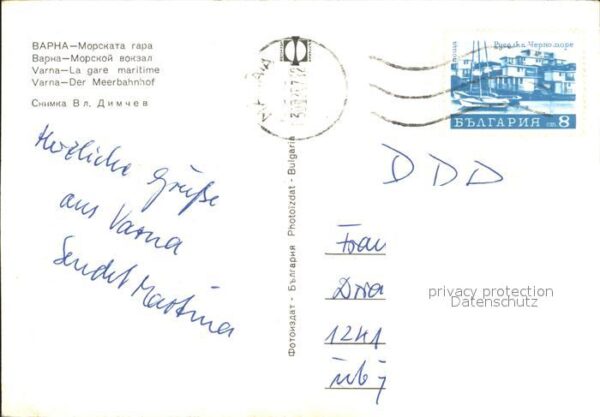 ВАРНА—Морската гара
Варна—Морской вокзал
Varna—La gare maritime
Varna—Der Meerbahnhof
Снимка Вл. Димчев
Herzliche Grüße
aus Varna
Sendet Martina
Фотоиздат - България Photoizdat - Bulgaria
поща
Русалка Черно море
БЪЛГАРИЯ ст. 8
DDD
Frau
privacy protection
Datenschutz